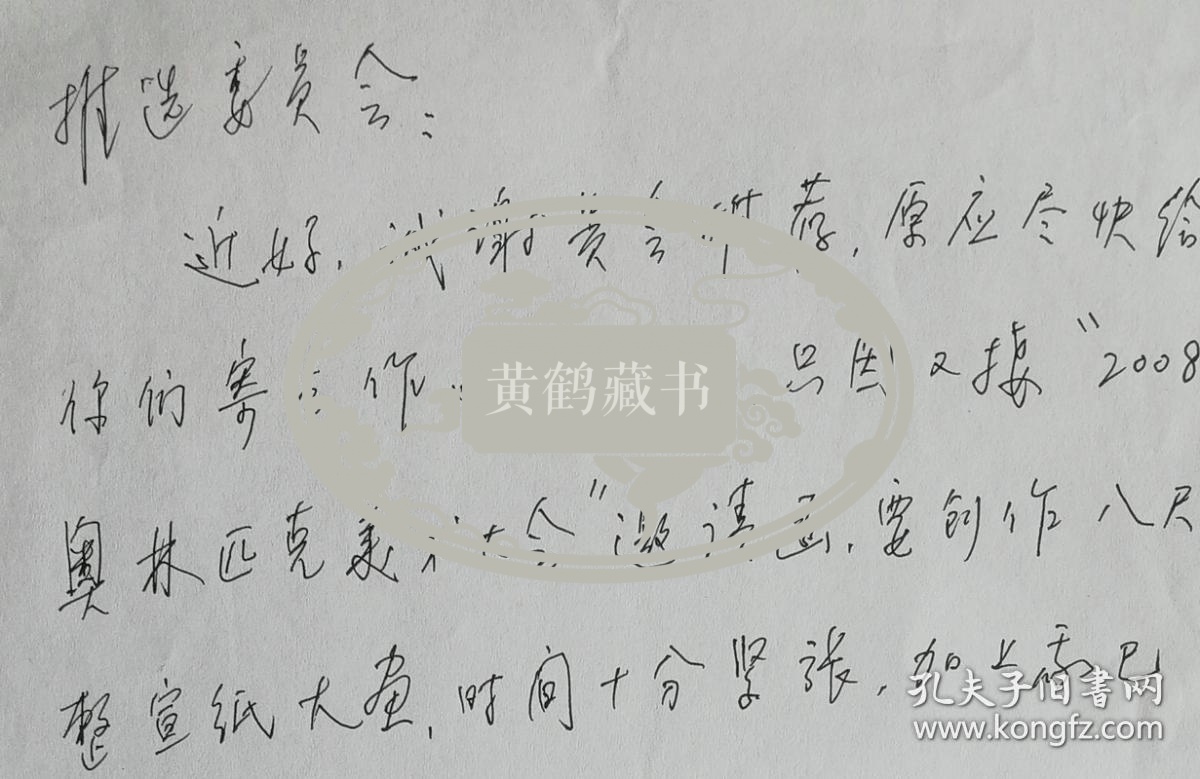 推选委员会：
近好，诚谢贵会推荐，原应尽快给
你们寄 作 只因又接“2008
奥林匹克美术大会”邀请函，要创作八尺
整宣纸大画，时间十分紧张，加上
黄鹤藏书
孔夫子旧書网
www.kongfz.com